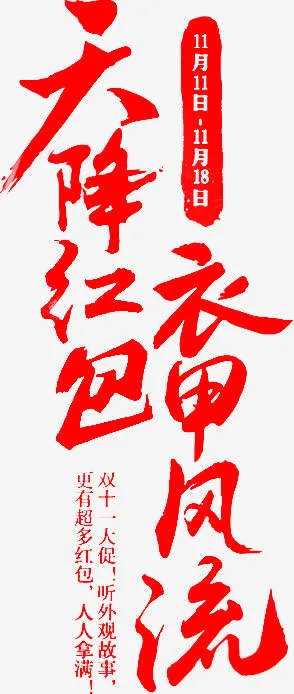 天降红包
衣甲风流
11月11日-11月18日
双十一大促！听外观故事，
更有超多红包，人人拿满！